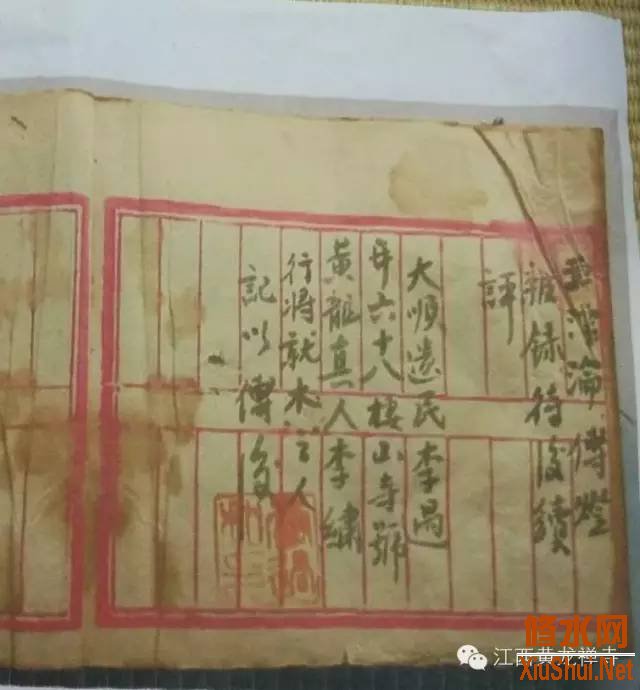 淪傳燈
錄待後續
評
大順遺民李過
年六十八棲山寺號
黄龍真人李繡
行將就木人
記以傳後
江西黄龙禅寺
修水网
XiuShui.Net